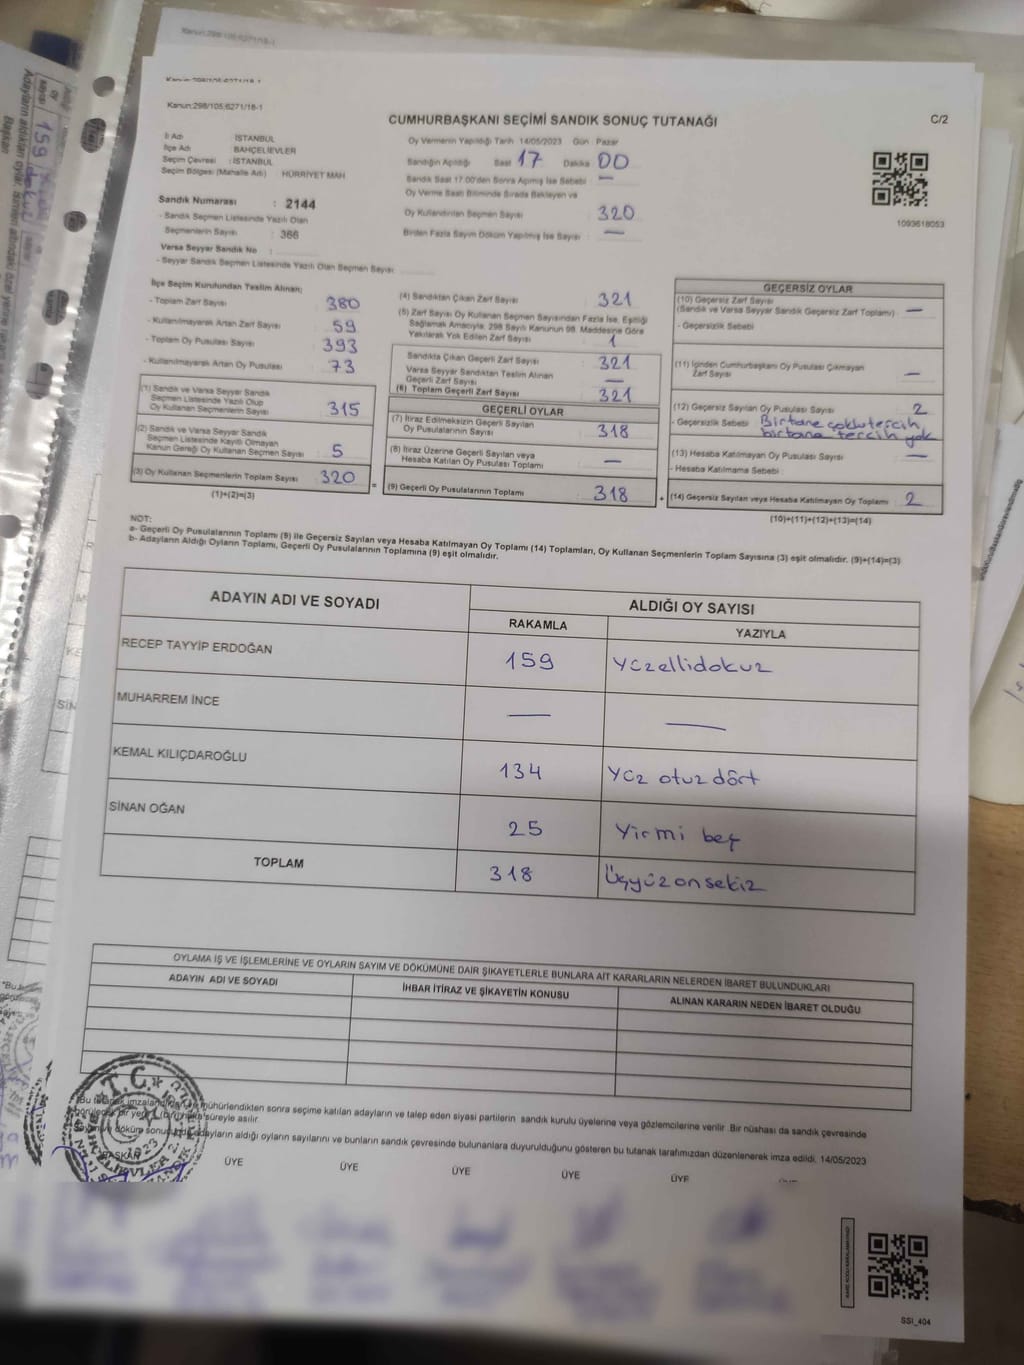 Kanun:298/105;6271/18-1
Kanun:298/105;6271/18-1
CUMHURBAŞKANI SEÇİMİ SANDIK SONUÇ TUTANAĞI
C/2
İl Adı İSTANBUL
İlçe Adı BAHÇELİEVLER
Seçim Çevresi : İSTANBUL
Seçim Bölgesi (Mahalle Adı) HÜRRİYET MAH
Sandık Numarası : 2144
- Sandık Seçmen Listesinde Yazılı Olan
Seçmenlerin Sayısı : 366
Varsa Seyyar Sandık No :
- Seyyar Sandık Seçmen Listesinde Yazılı Olan Seçmen Sayısı
Oy Vermenin Yapıldığı Tarih 14/05/2023 Gün Pazar
Sandığın Açıldığı Saat 17 Dakika 00
Sandık Saat 17.00'den Sonra Açılmış İse Sebebi —
Oy Verme Saati Bitiminde Sırada Bekleyen ve
Oy Kullandırılan Seçmen Sayısı 320
Birden Fazla Sayım Döküm Yapılmış İse Sayısı —
1093618053
İlçe Seçim Kurulundan Teslim Alınan;
- Toplam Zarf Sayısı : 380
- Kullanılmayarak Artan Zarf Sayısı : 59
- Toplam Oy Pusulası Sayısı : 393
- Kullanılmayarak Artan Oy Pusulası : 73
(1) Sandık ve Varsa Seyyar Sandık
Seçmen Listesinde Yazılı Olup
Oy Kullanan Seçmenlerin Sayısı : 315
(2) Sandık ve Varsa Seyyar Sandık
Seçmen Listesinde Kayıtlı Olmayan
Kanun Gereği Oy Kullanan Seçmen Sayısı : 5
(3) Oy Kullanan Seçmenlerin Toplam Sayısı : 320
(1)+(2)=(3)
(4) Sandıktan Çıkan Zarf Sayısı : 321
(5) Zarf Sayısı Oy Kullanan Seçmen Sayısından Fazla İse, Eşitliği
Sağlamak Amacıyla, 298 Sayılı Kanunun 98. Maddesine Göre
Yakılarak Yok Edilen Zarf Sayısı : 1
Sandıkta Çıkan Geçerli Zarf Sayısı : 321
Varsa Seyyar Sandıktan Teslim Alınan
Geçerli Zarf Sayısı —
(6) Toplam Geçerli Zarf Sayısı : 321
GEÇERLİ OYLAR
(7) İtiraz Edilmeksizin Geçerli Sayılan
Oy Pusulalarının Sayısı : 318
(8) İtiraz Üzerine Geçerli Sayılan veya
Hesaba Katılan Oy Pusulası Toplamı : —
(9) Geçerli Oy Pusulalarının Toplamı : 318
GEÇERSİZ OYLAR
(10) Geçersiz Zarf Sayısı
(Sandık ve Varsa Seyyar Sandık Geçersiz Zarf Toplamı) : —
- Geçersizlik Sebebi
(11) İçinden Cumhurbaşkanı Oy Pusulası Çıkmayan
Zarf Sayısı : —
(12) Geçersiz Sayılan Oy Pusulası Sayısı : 2
- Geçersizlik Sebebi Birtane çoklu tercih
birtane tercih yok
(13) Hesaba Katılmayan Oy Pusulası Sayısı : —
- Hesaba Katılmama Sebebi
(14) Geçersiz Sayılan veya Hesaba Katılmayan Oy Toplamı : 2
(10)+(11)+(12)+(13)=(14)
NOT:
a- Geçerli Oy Pusulalarının Toplamı (9) ile Geçersiz Sayılan veya Hesaba Katılmayan Oy Toplamı (14) Toplamları, Oy Kullanan Seçmenlerin Toplam Sayısına (3) eşit olmalıdır. (9)+(14)=(3)
b- Adayların Aldığı Oyların Toplamı, Geçerli Oy Pusulalarının Toplamına (9) eşit olmalıdır.
ADAYIN ADI VE SOYADI ALDIĞI OY SAYISI
RAKAMLA YAZIYLA
RECEP TAYYİP ERDOĞAN 159 Yüzellidokuz
MUHARREM İNCE — —
KEMAL KILIÇDAROĞLU 134 Yüz otuz dört
SİNAN OĞAN 25 Yirmi beş
TOPLAM 318 Üçyüzonsekiz
OYLAMA İŞ VE İŞLEMLERİNE VE OYLARIN SAYIM VE DÖKÜMÜNE DAİR ŞİKAYETLERLE BUNLARA AİT KARARLARIN NELERDEN İBARET BULUNDUKLARI
ADAYIN ADI VE SOYADI İHBAR İTİRAZ VE ŞİKAYETİN KONUSU ALINAN KARARIN NEDEN İBARET OLDUĞU
mühürlendikten sonra seçime katılan adayların ve talep eden siyasi partilerin sandık kurulu üyelerine veya gözlemcilerine verilir. Bir nüshası da sandık çevresinde
süreyle asılır.
adayların aldığı oyların sayılarını ve bunların sandık çevresinde bulunanlara duyurulduğunu gösteren bu tutanak tarafımızdan düzenlenerek imza edildi. 14/05/2023
BAŞKAN ÜYE ÜYE ÜYE ÜYE ÜYE
T.C.
1923
SSI_404